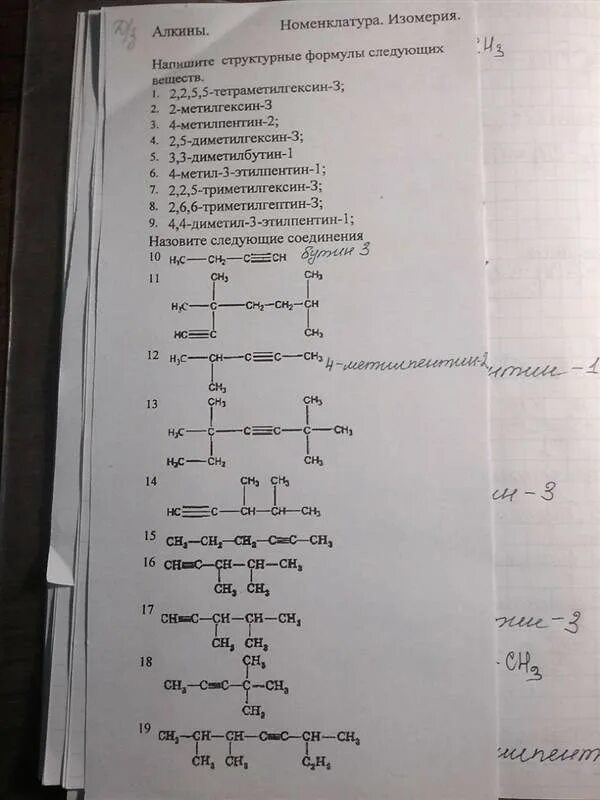 Д/з
Алкины. Номенклатура. Изомерия.
Напишите структурные формулы следующих
веществ.
1. 2,2,5,5-тетраметилгексин-3;
2. 2-метилгексин-3
3. 4-метилпентин-2;
4. 2,5-диметилгексин-3;
5. 3,3-диметилбутин-1
6. 4-метил-3-этилпентин-1;
7. 2,2,5-триметилгексин-3;
8. 2,6,6-триметилгептин-3;
9. 4,4-диметил-3-этилпентин-1;
Назовите следующие соединения
10 H₃C—CH₂—C≡CH бутин 3
11 CH₃ CH₃
H₃C—C—CH₂—CH₂—CH
HC≡C CH₃
12 H₃C—CH—C≡C—CH₃ 4-метилпентин-2
CH₃
13 CH₃ CH₃
H₃C—C—C≡C—C—CH₃
H₃C—CH₂ CH₃
14 CH₃ CH₃
HC≡C—CH—CH—CH₃
15 CH₃—CH₂—CH₂—C≡C—CH₃
16 CH≡C—CH—CH—CH₃
CH₃ CH₃
17 CH≡C—CH—CH—CH₃
CH₃ CH₃
18 CH₃
CH₃—C≡C—C—CH₃
CH₃
19 CH₃—CH—CH—C≡C—CH—CH₃
CH₃ CH₃ C₂H₅
CH₃
нтин-1
ин-3
-3
CH₃